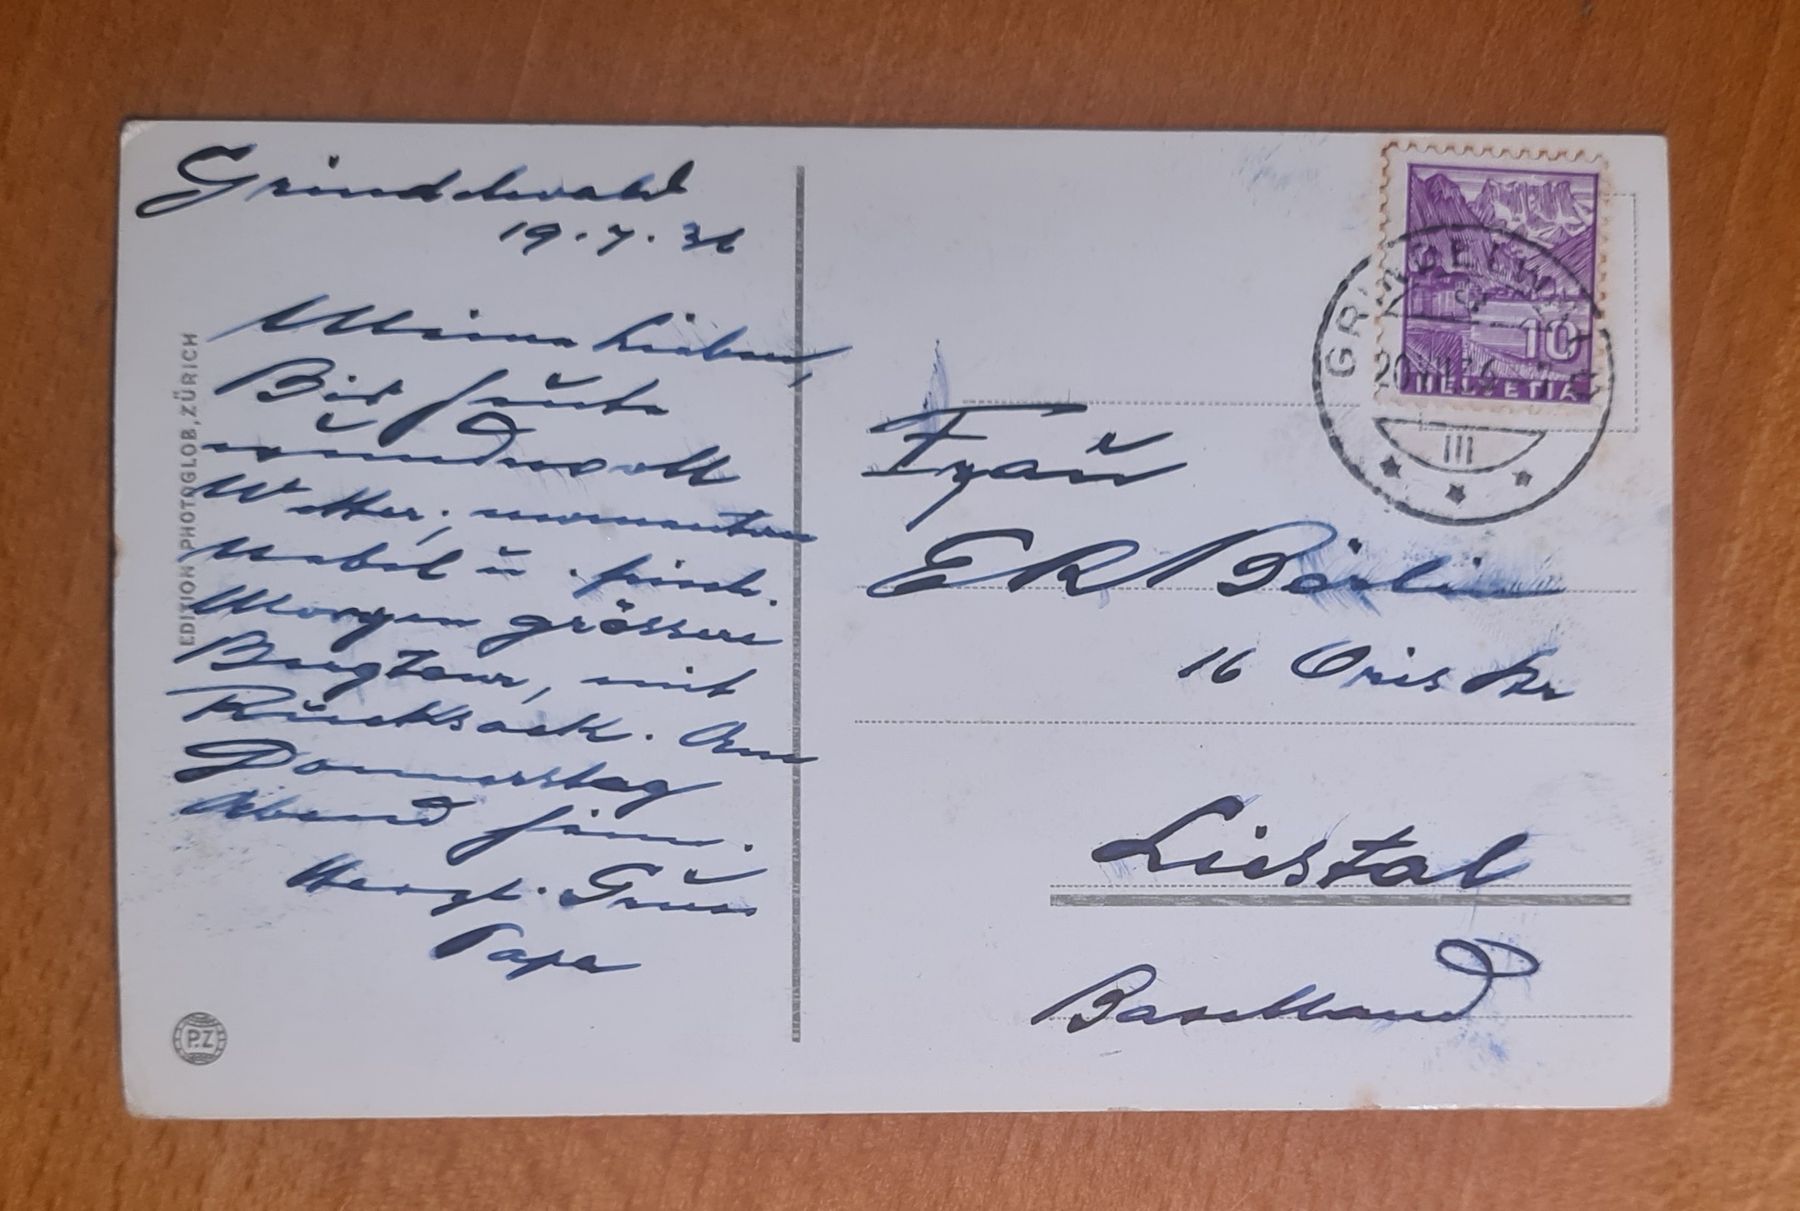 Grindelwald
19.7.36
Meine Lieben,
Bis heute
wundervoll
Wetter, momentan
Nebel u. frisch.
Morgen grössere
Bergtour, mit
Rucksack. Am
Donnerstag
Abend heim.
Herzl. Gruss
Papa
EDITION PHOTOGLOB, ZÜRICH
P.Z
GRINDELWALD
20.VII.36
10
HELVETIA
III
Frau
E Börlin
16 Oris str
Liestal
Baselland